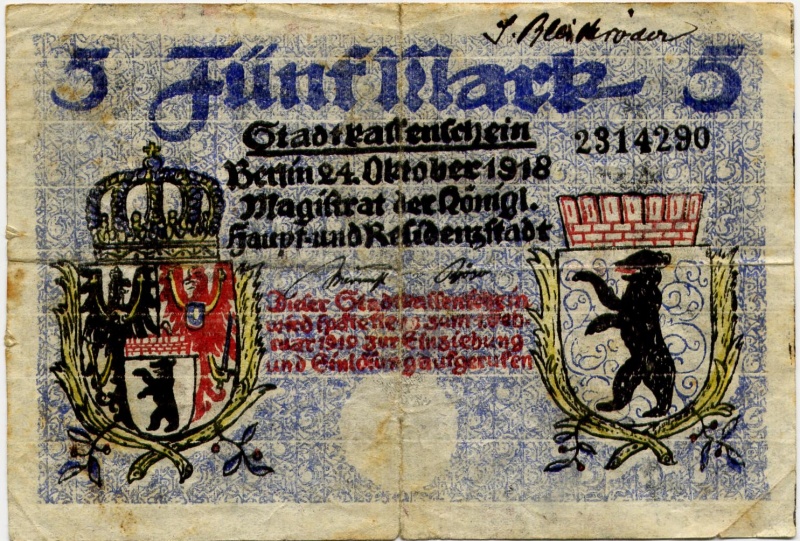 S. Bleichröder
5 Fünf Mark 5
Stadtkassenschein
2314290
Berlin 24. Oktober 1918
Magistrat der Königl.
Haupt- und Residenzstadt
Dieser Stadtkassenschein
wird spätestens zum 1. Feb-
ruar 1919 zur Einziehung
und Einlösung aufgerufen